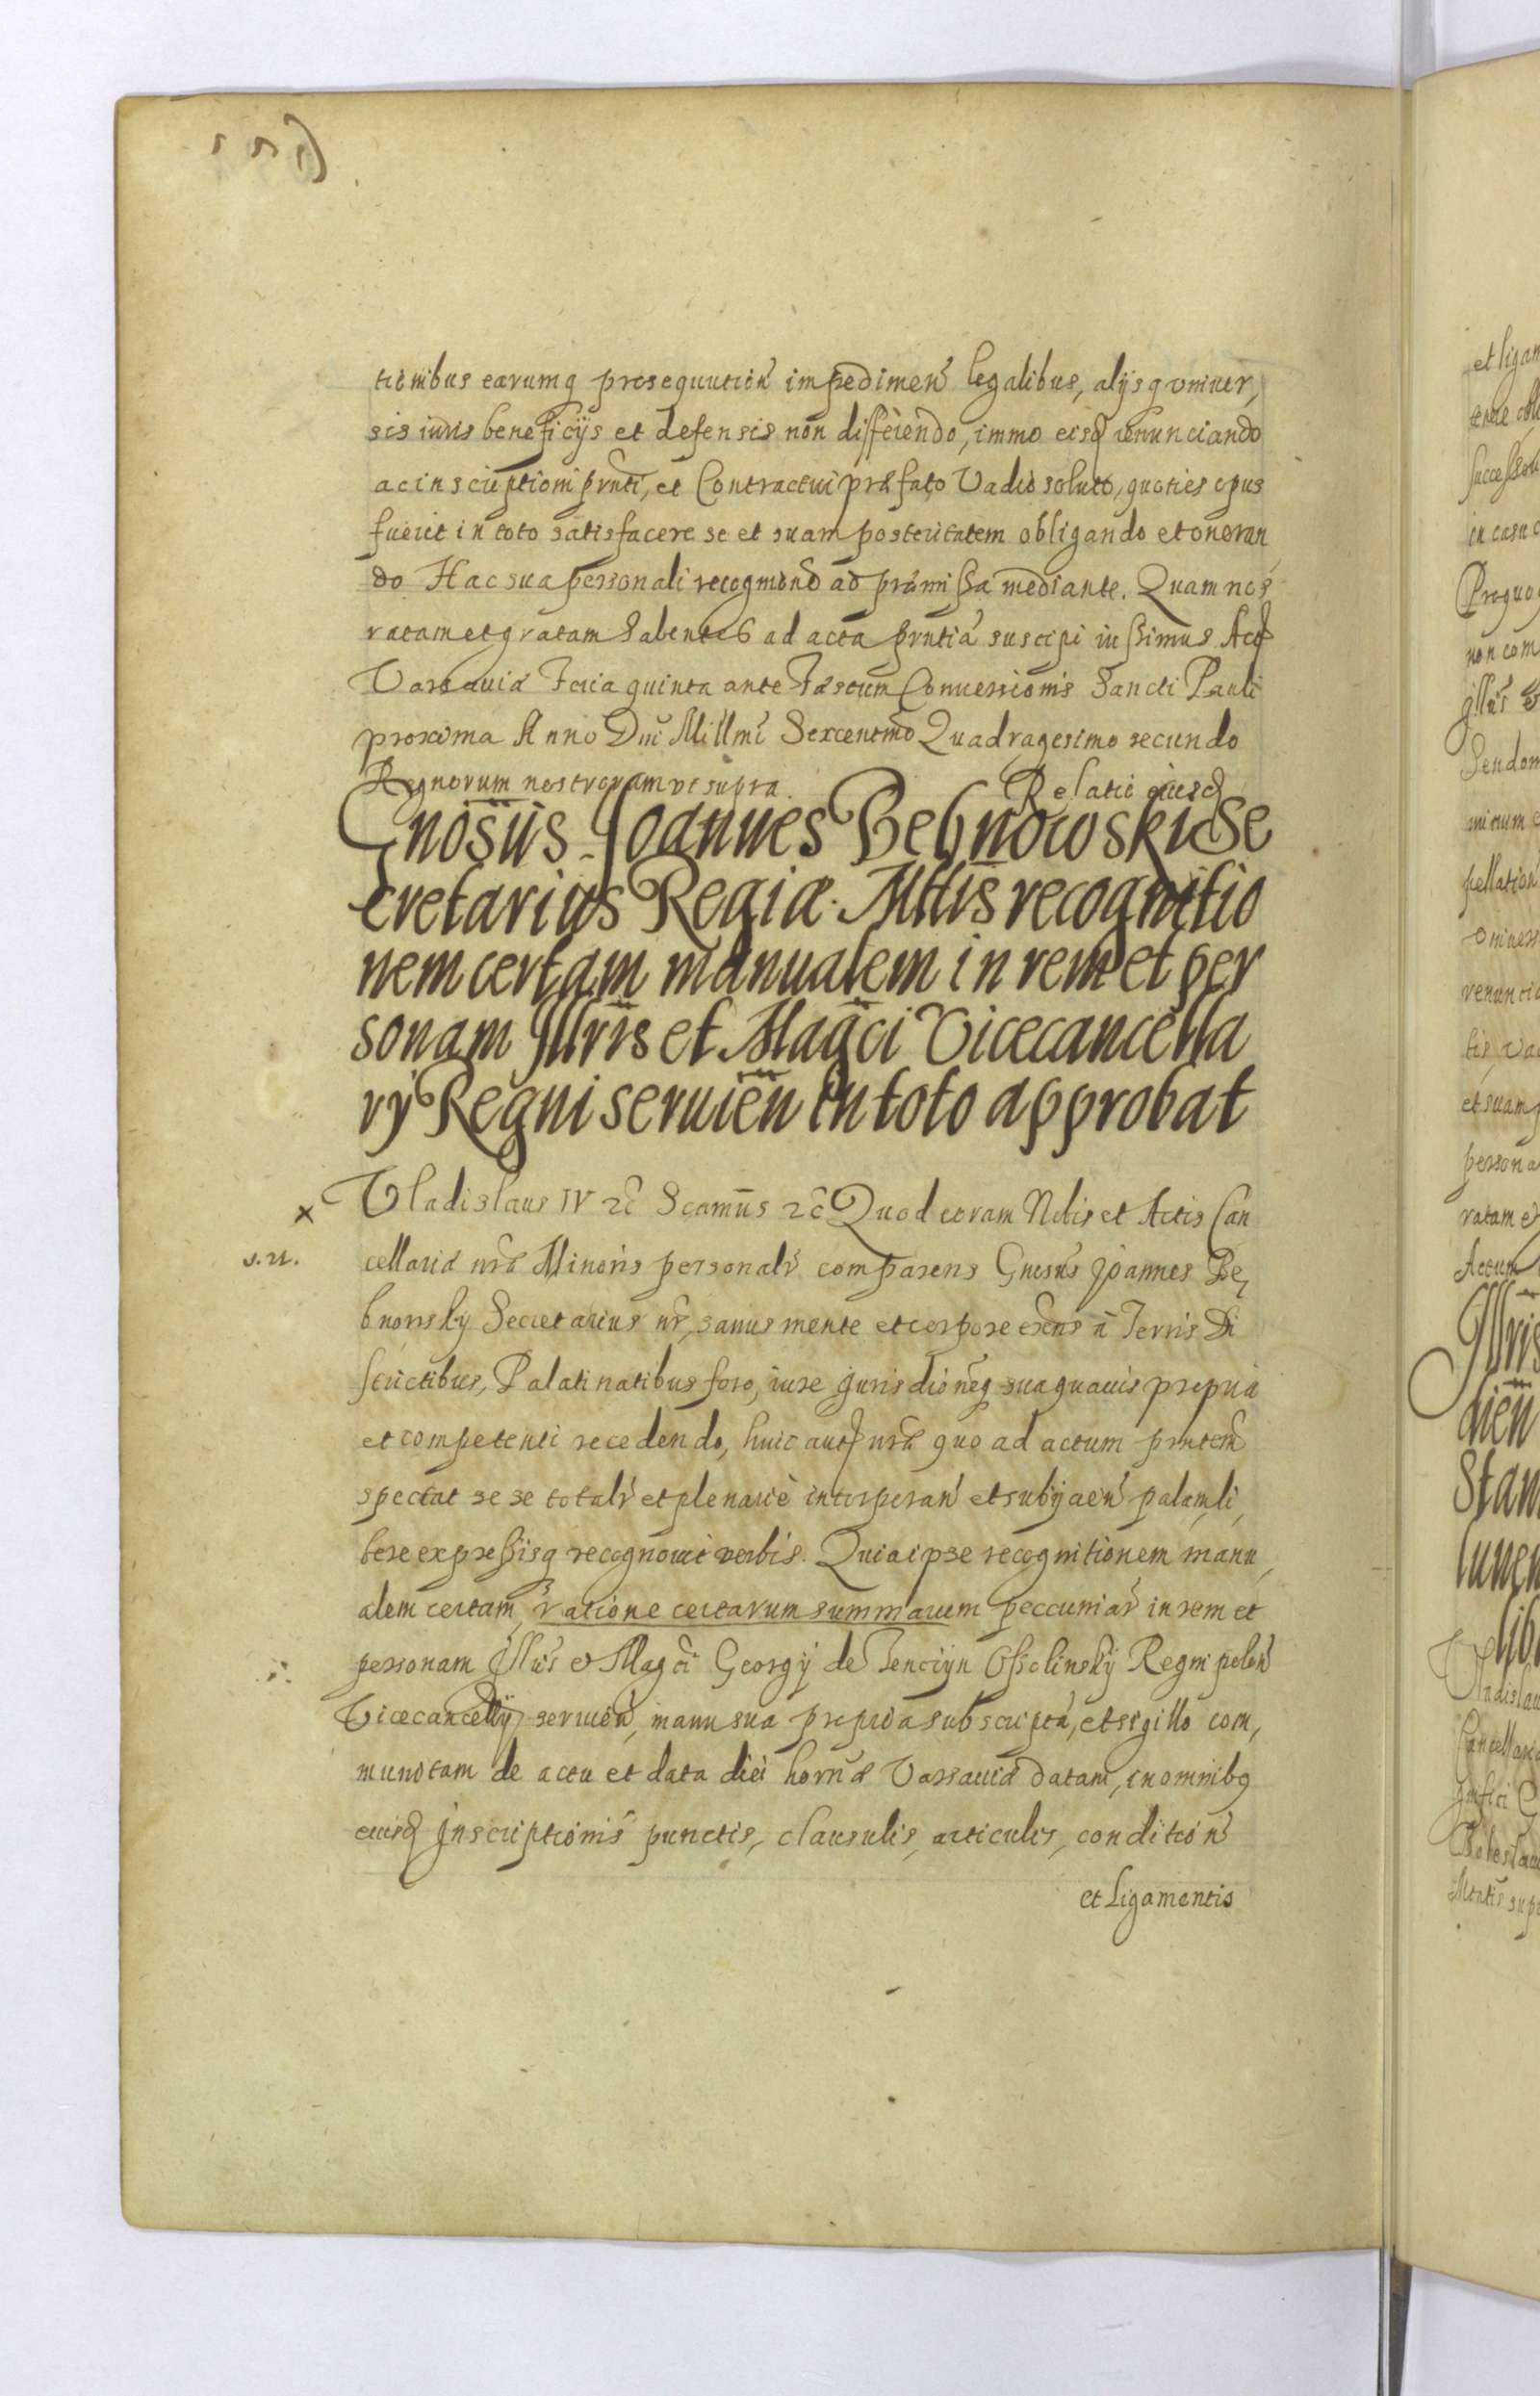 tionibus earumq prosequution impedimen legalibus, alijsq vniuer,
sis iuris beneficijs et defensis non differendo, immo eisq renunciando
ac inscriptioni prnti, et Contractui præfato Vadio soluto, quoties opus
fuerit in toto satisfacere se et suam posteritatem obligando et oneran
do Hac sua personali recognione ad præmissa mediante. Quam nos
ratam et gratam habentes ad acta prntia suscipi iussimus Act
Varsauiæ Feria quinta ante Festum Conuersionis Sancti Pauli
proxima Anno Dni Millmi Sexcentmo Quadragesimo secundo
Regnorum nostrorum vt supra. Relatio eiusd
Gnosus Joannes Bebnowski Se
cretarius Regiæ Mttis recognitio
nem certam manualem in rem et per
sonam Jllris et Magci Vicecancella
rij Regni seruien in toto approbat
Vladislaus IV &c Scamus &c Quod coram Nobis et Actis Can
cellariæ nræ Minoris personalr comparens Gnosus Joannes Be,
bnowsky Secretarius nr, sanus mente et corpore exns a Terris Di
strictibus, Palatinatibus foro, iure Jurisdioneq sua quauis propria
et competenti recedendo, huic aut nræ quo ad actum prntem
spectat se se totalr et plenarie incorporan et subijcien palam, li,
bere expressisq recognouit verbis. Quia ipse recognitionem manu,
alem certam, ratione certarum summarum peccuniar in rem et
personam Jllris et Magci Georgij de Tenczyn Ossolinsky Regni polon
Vicecancellrij seruien, manu sua propria subscripta, et sigillo com,
munotam de actu et data diei hornæ Varsauiæ datam, in omnibq
eiusd Jnscriptionis punctis, clausulis, articulis, condition
et Ligamentis